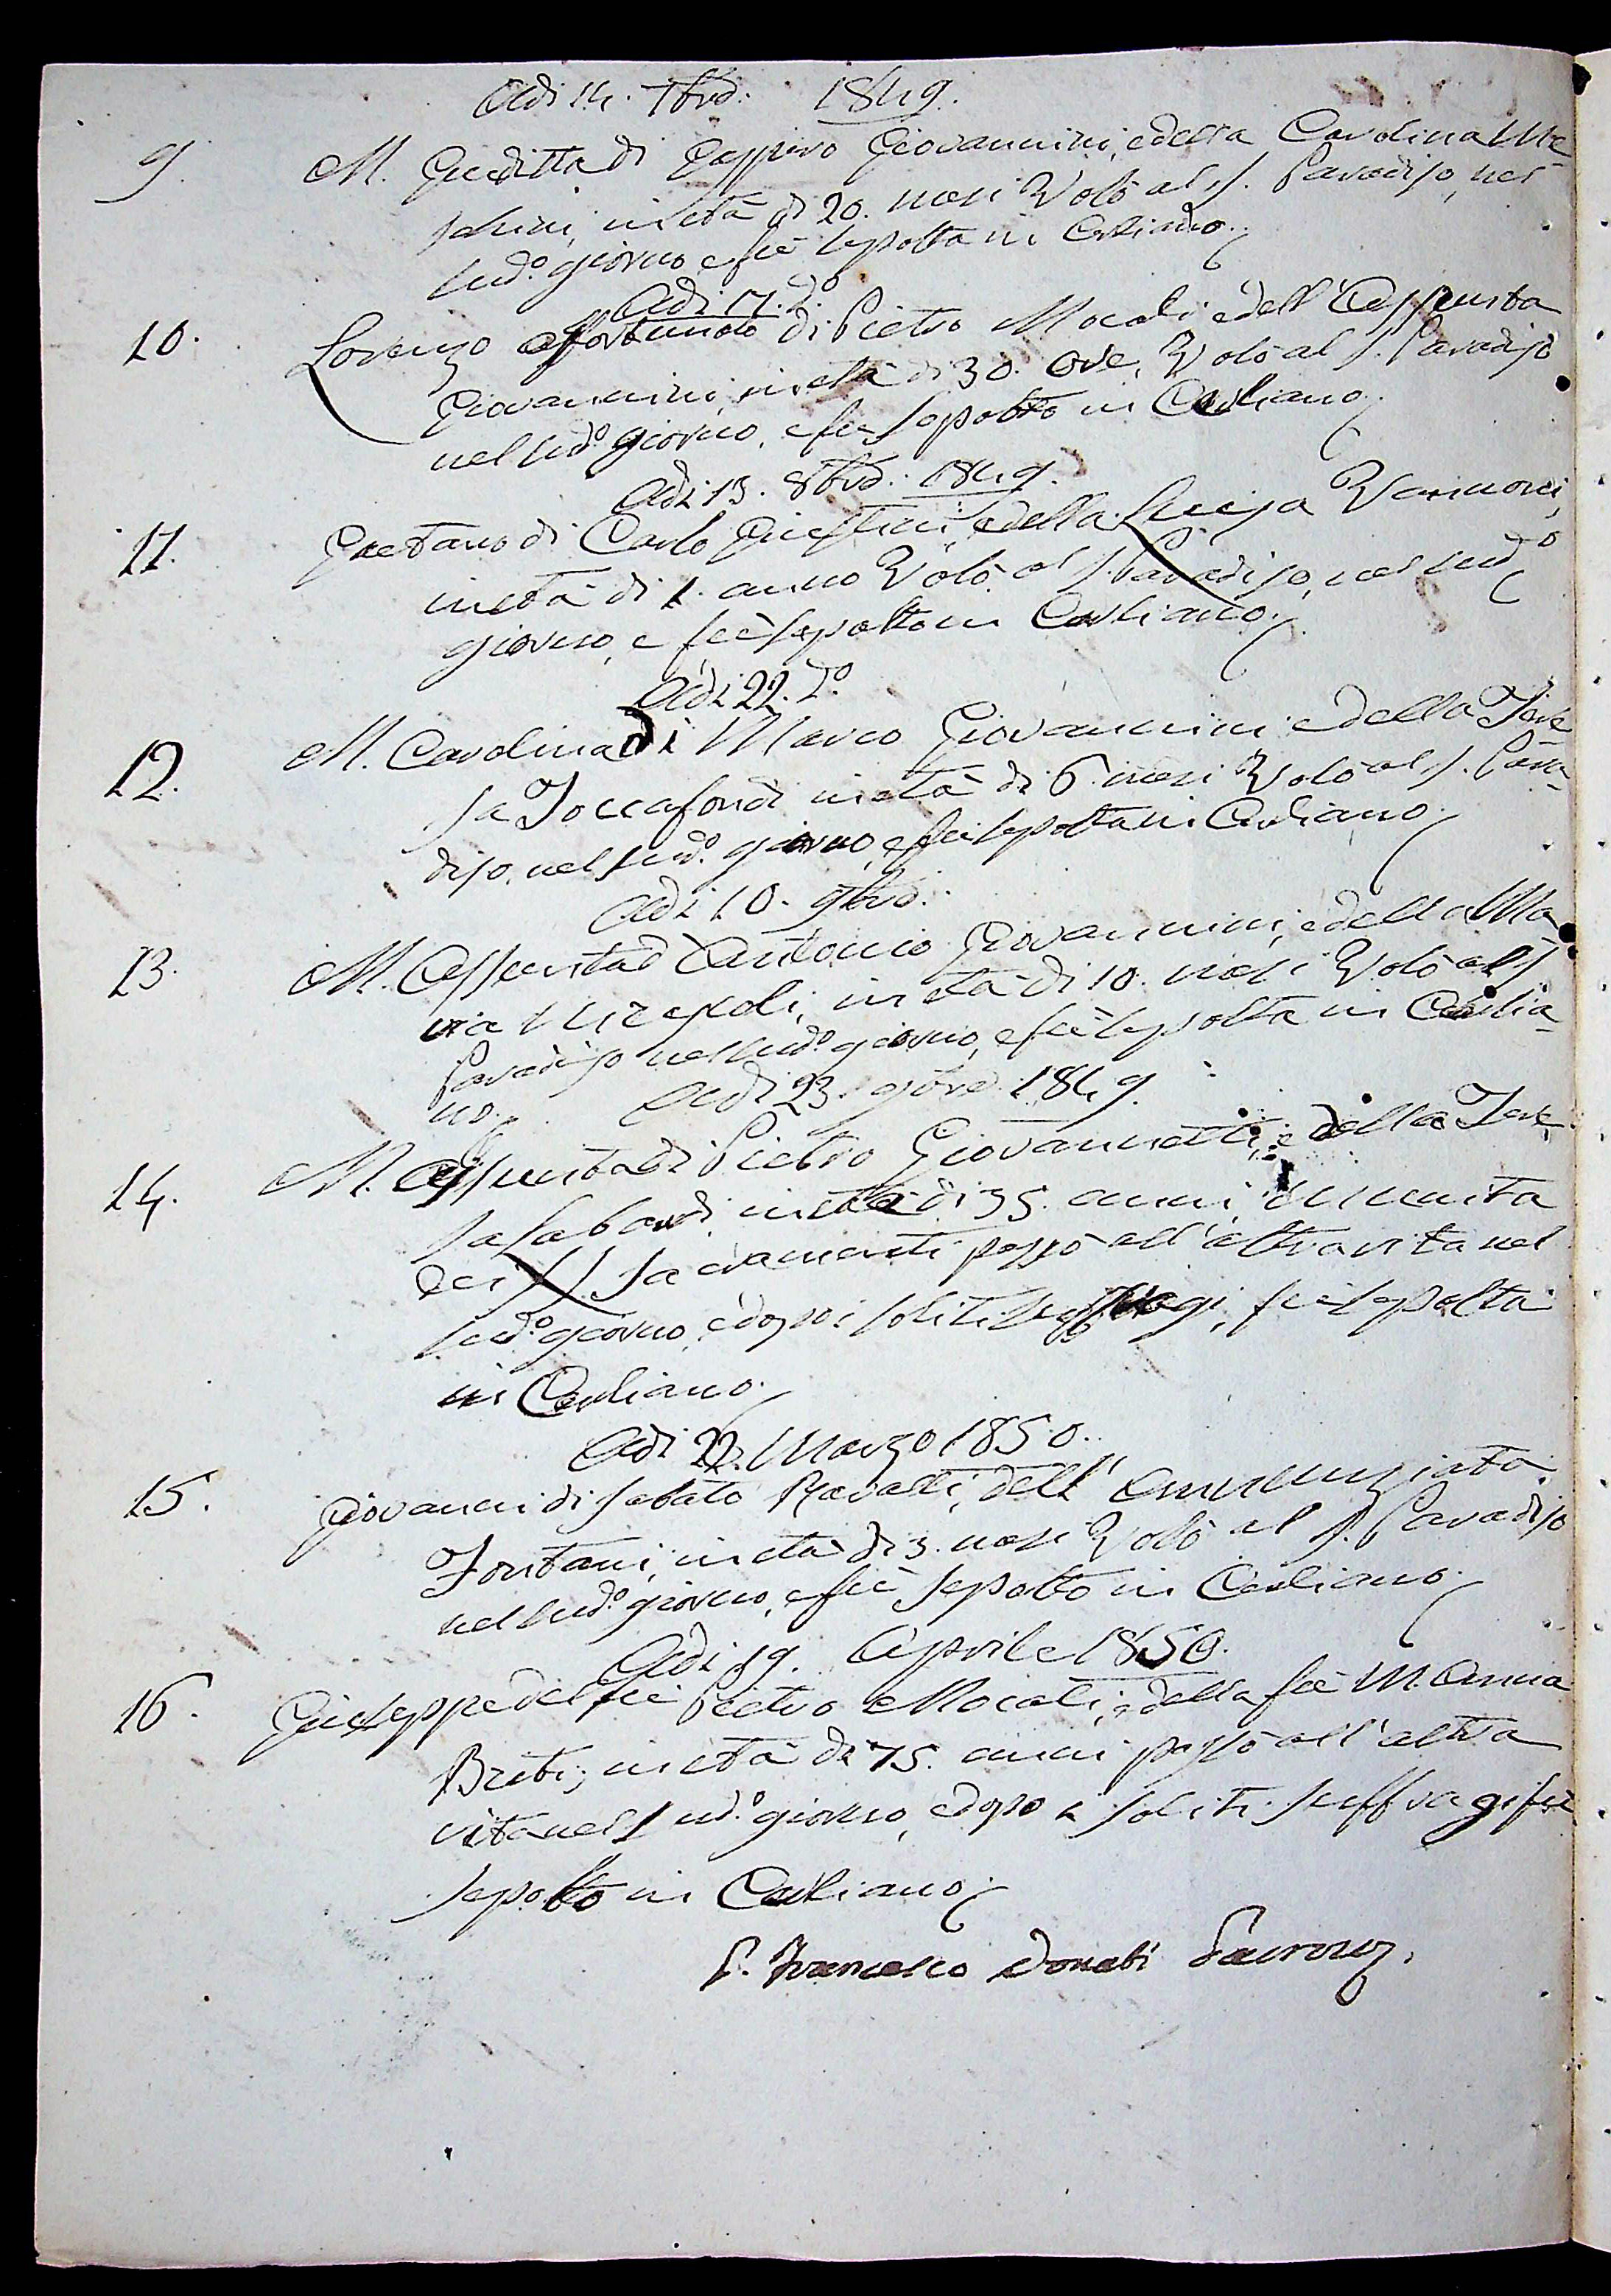 Adì 14. 7bre. 1849.
9. M. Giuditta di Gasparo Giovannini, e della Carolina Me-
schini, in età di 20. mesi Volò al S. Paradiso, nel
sud.º giorno, e fu sepolta in Carliano.
Adì 17. d.º
10. Lorenzo Fortunato di Pietro Mocali e dell'Assunta
Giovannini, in età di 30. Ore, Volò al S. Paradiso
nel sud.º giorno, e fu sepolto in Carliano.
Adì 13. 8bre. 1849.
11. Gaetano di Carlo Giustini, e della Luisa Vannoni,
in età di 1. anno Volò al S. Paradiso, nel sud.º
giorno, e fu sepolto in Carliano.
Adì 22. d.º
12. M. Carolina di Marco Giovannini e della Tere
sa Toccafondi in età di 6. mesi Volò al S. Para-
diso, nel sud.º giorno, e fu sepolta in Carliano.
Adì 10. 9bre.
13. M. Assunta d'Antonio Giovannini, e della Ma
ria in età di 10. mesi Volò al S.
Paradiso nel sud.º giorno, e fu sepolta in Carlia-
no. Adì 23. 9bre. 1849.
14. M. Assunta di Pietro Giovannetti, e della Tere
sa in età di 35. anni, munita
dei SS. Sacramenti passò all'altra vita nel
sud.º giorno, e dopo i soliti suffragi, fu sepolta
in Carliano.
Adì 22. Marzo 1850.
15. Giovanni di Sabato Ravalli, dell'Annunziata
Fontani, in età di 3. mesi Volò al S. Paradiso
nel sud.º giorno, e fu sepolto in Carliano.
Adì 19. Aprile 1850.
16. Giuseppe del fu Pietro Mocali, e della fu M. Anna
in età di 75. anni passò all'altra
vita nel sud.º giorno, e dopo i soliti suffragi fu
sepolto in Carliano.
P. Francesco Donati